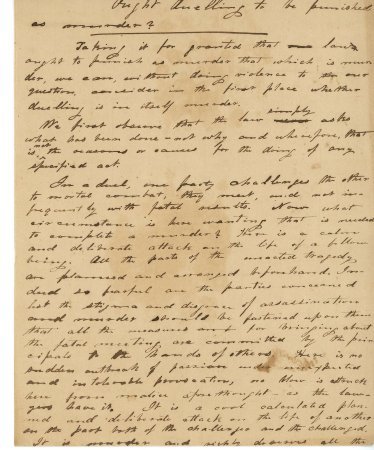 Ought duelling to be punished
as murder?
Taking it for granted that laws
ought to punish as murder that which is mur-
der, we can, without doing violence to our
question, consider in the first place whether
duelling is in itself murder.
We first observe that the law simply asks
what has been done not why and wherefore, that
is, not the reasons or causes for the doing of any
specified act.
In a duel one party challenges the other
to mortal combat, they meet, and not in-
frequently with fatal results. Now what
circumstance is here wanting that is needed
to complete a murder? There is a calm
and deliberate attack on the life of a fellow
being. All the parts of the enacted tragedy
are planned and arranged beforehand. In-
deed so fearful are the parties concerned
lest the stigma and disgrace of assassination
and murder should be fastened upon them
that all the measures for bringing about
the fatal meeting are committed by the prin
cipals to the hands of others. Here is no
sudden outbreak of passion under unexpected
and intolerable provocation, no blow is struck
here from malice aforethought as the law-
yers have it. It is a cool calculated plan-
ned and deliberate attack on the life of another
on the part both of the challenger and the challenged.
It is murder and richly deserves all the